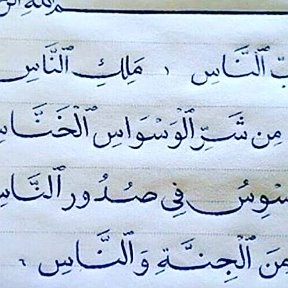 ـبِّ ٱلنَّاسِ ١ مَلِكِ ٱلنَّاسِ
مِن شَرِّ ٱلْوَسْوَاسِ ٱلْخَنَّاسِ
ـسْوِسُ فِي صُدُورِ ٱلنَّاسِ
مِنَ ٱلْجِنَّةِ وَٱلنَّاسِ ٦